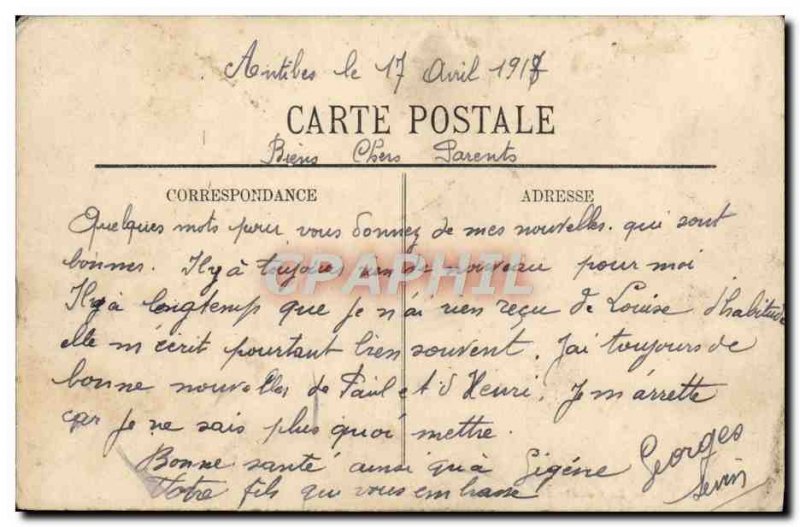 Antibes le 17 Avril 1917
CARTE POSTALE
Biens Chers Parents
CORRESPONDANCE
ADRESSE
Quelques mots pour vous donnez de mes nouvelles. qui sont
bonnes. Il y à toujours rien de nouveau pour moi
Il y à longtemp que je n'ai rien reçu de Louise d'habitude
elle m'écrit pourtant bien souvent. J'ai toujours de
bonne nouvelles de Paul et d Henri. Je m'arrette
car je ne sais plus quoi mettre.
Bonne santé ainsi qu'à
Votre fils qui vous embrasse
Georges
CPAPHIL